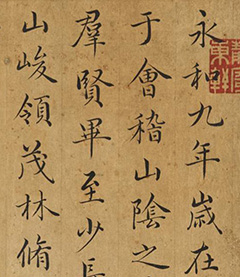 永和九年歲在
于會稽山陰之
羣賢畢至少長
山峻領茂林脩